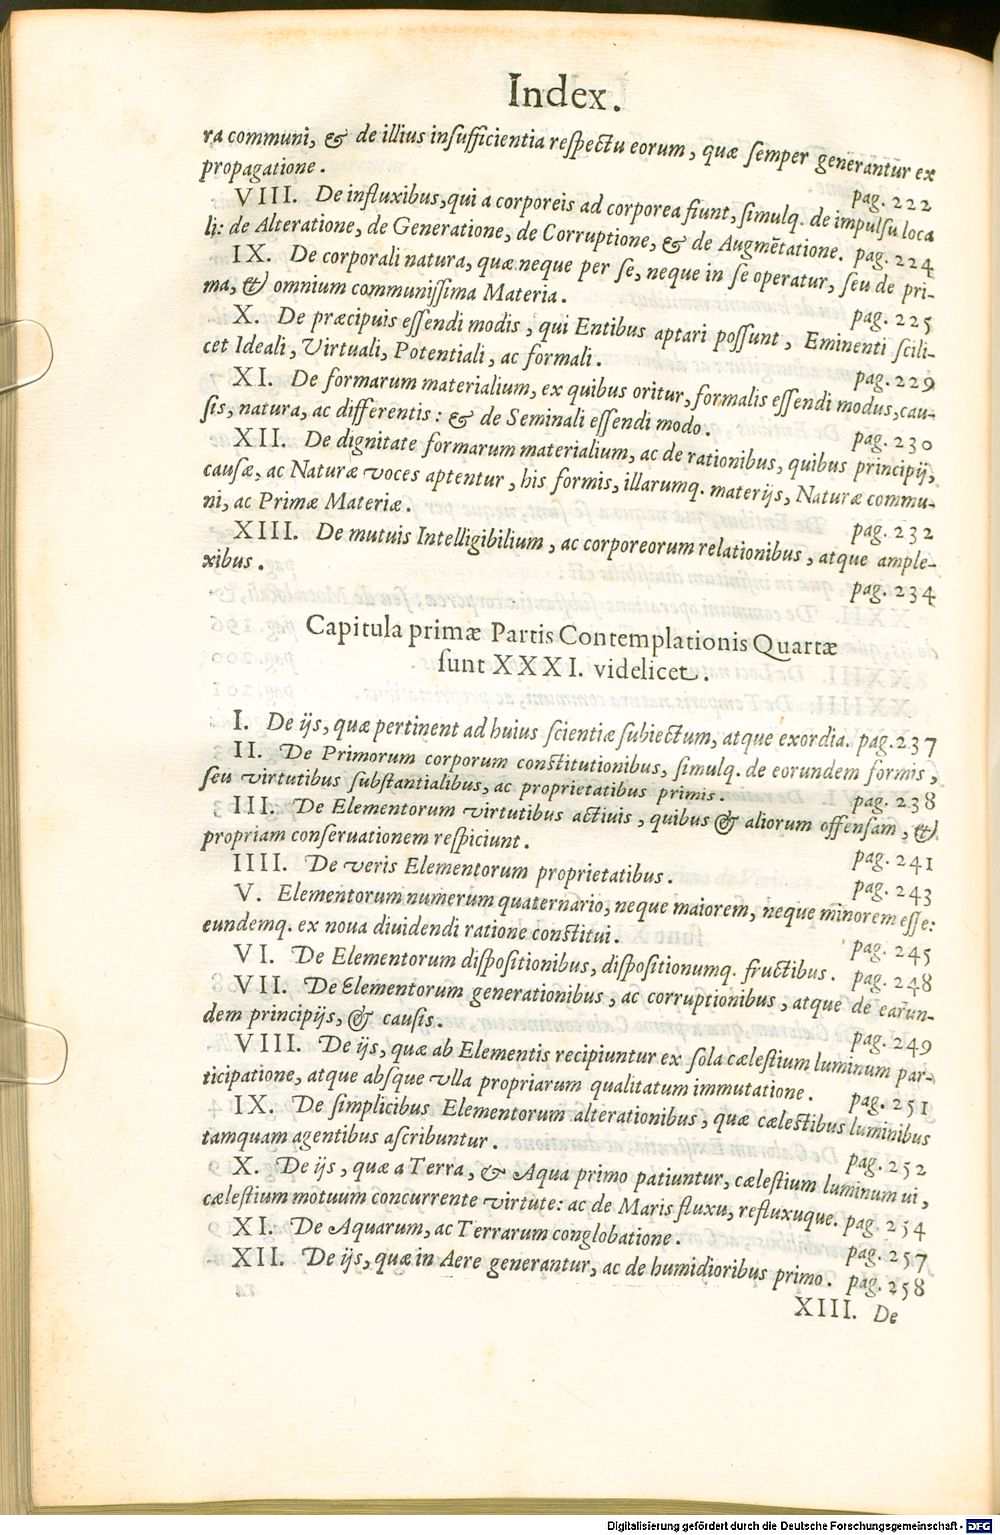 Index.
ra communi, & de illius insufficientia respectu eorum, quæ semper generantur ex
propagatione. pag. 222
VIII. De influxibus, qui a corporeis ad corporea fiunt, simulq. de impulsu loca
li: de Alteratione, de Generatione, de Corruptione, & de Augmẽtatione. pag. 224
IX. De corporali natura, quæ neque per se, neque in se operatur, seu de pri-
ma, & omnium communissima Materia. pag. 225
X. De præcipuis essendi modis, qui Entibus aptari possunt, Eminenti scili-
cet Ideali, Virtuali, Potentiali, ac formali. pag. 229
XI. De formarum materialium, ex quibus oritur, formalis essendi modus, cau-
sis, natura, ac differentis: & de Seminali essendi modo. pag. 230
XII. De dignitate formarum materialium, ac de rationibus, quibus principij,
causæ, ac Naturæ voces aptentur, his formis, illarumq. materijs, Naturæ commu-
ni, ac Primæ Materiæ. pag. 232
XIII. De mutuis Intelligibilium, ac corporeorum relationibus, atque ample-
xibus. pag. 234
Capitula primæ Partis Contemplationis Quartæ
sunt XXXI. videlicet.
I. De ijs, quæ pertinent ad huius scientiæ subiectum, atque exordia. pag. 237
II. De Primorum corporum constitutionibus, simulq. de eorundem formis,
seu virtutibus substantialibus, ac proprietatibus primis. pag. 238
III. De Elementorum virtutibus actiuis, quibus & aliorum offensam, &
propriam conseruationem respiciunt. pag. 241
IIII. De veris Elementorum proprietatibus. pag. 243
V. Elementorum numerum quaternario, neque maiorem, neque minorem esse:
eundemq. ex noua diuidendi ratione constitui. pag. 245
VI. De Elementorum dispositionibus, dispositionumq. fructibus. pag. 248
VII. De Elementorum generationibus, ac corruptionibus, atque de earun-
dem principijs, & causis. pag. 249
VIII. De ijs, quæ ab Elementis recipiuntur ex sola cælestium luminum par-
ticipatione, atque absque vlla propriarum qualitatum immutatione. pag. 251
IX. De simplicibus Elementorum alterationibus, quæ cælestibus luminibus
tamquam agentibus ascribuntur. pag. 252
X. De ijs, quæ a Terra, & Aqua primo patiuntur, cælestium luminum ui,
cælestium motuum concurrente virtute: ac de Maris fluxu, refluxuque. pag. 254
XI. De Aquarum, ac Terrarum conglobatione. pag. 257
XII. De ijs, quæ in Aere generantur, ac de humidioribus primo. pag. 258
XIII. De
Digitalisierung gefördert durch die Deutsche Forschungsgemeinschaft - DFG